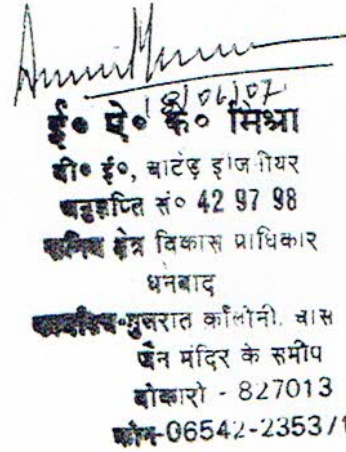 18/06/07
ई० ऐ० के० मिश्रा
बी० ई०, चार्टड इंजीनियर
अनुज्ञप्ति सं० 42 97 98
खनिज क्षेत्र विकास प्राधिकार
धनबाद
गुजरात कॉलोनी, चास
जैन मंदिर के समीप
बोकारो - 827013
फोन-06542-2353